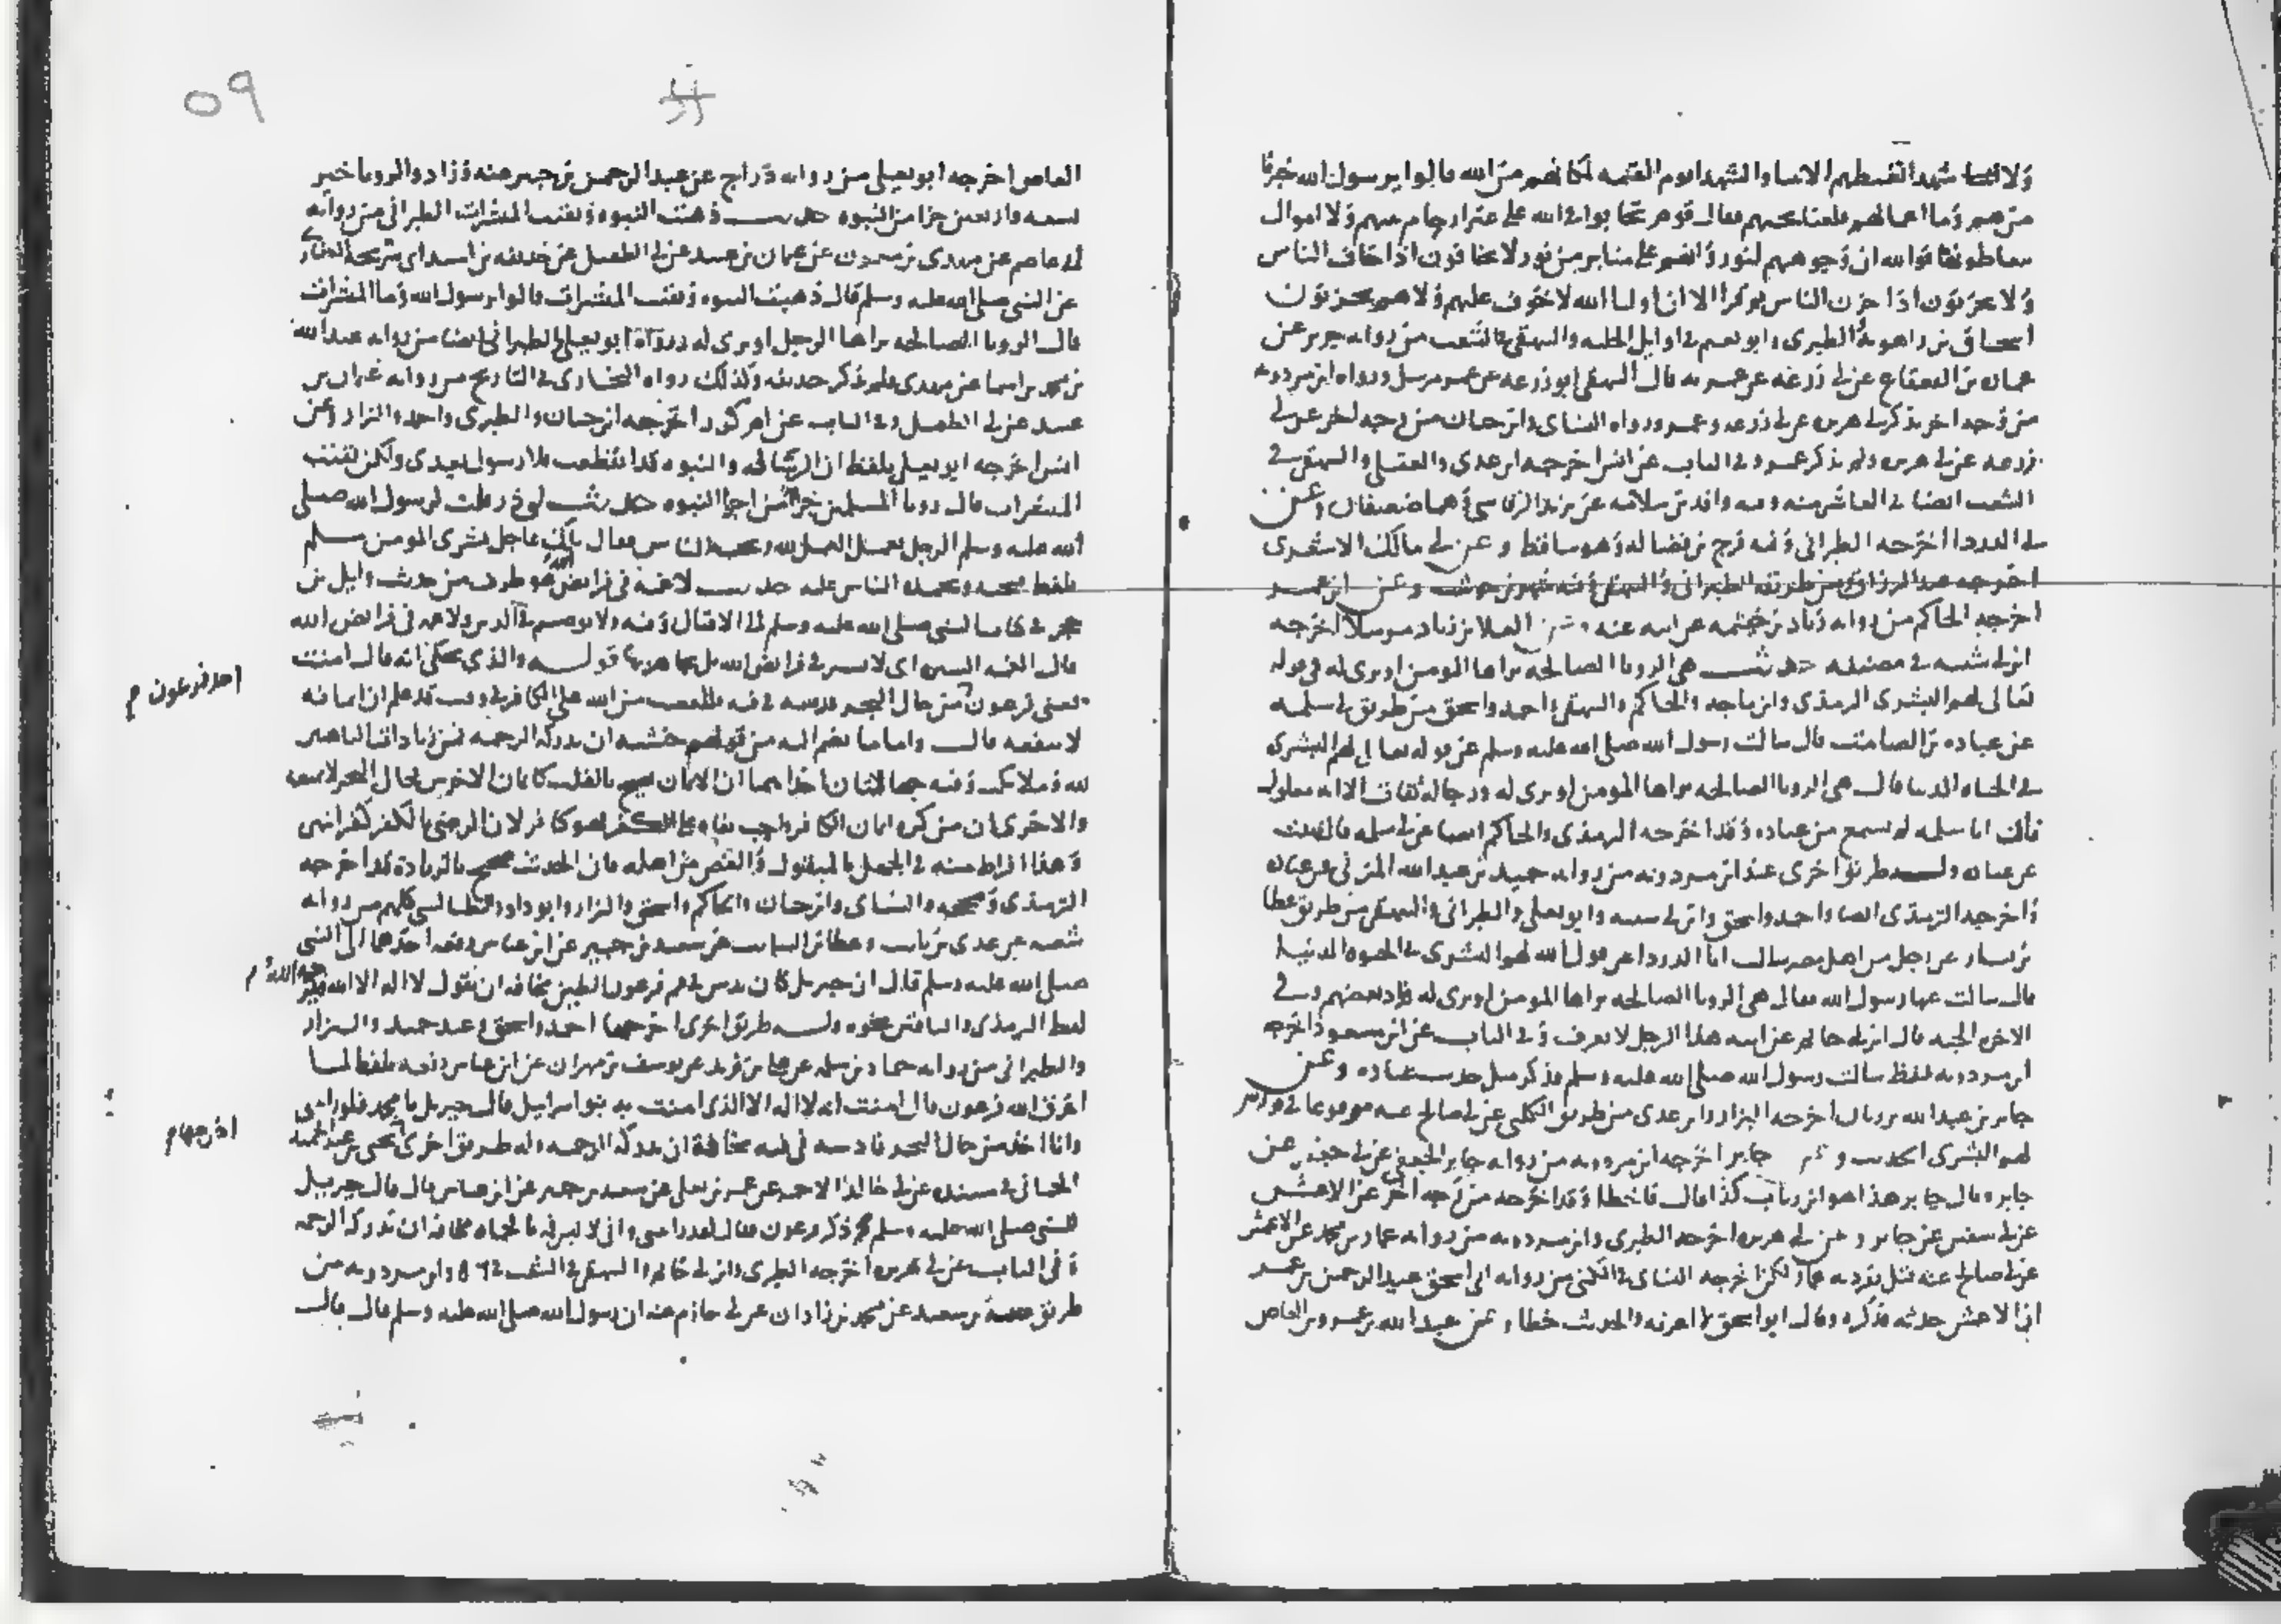 ولا شهدا يغبطهم الانبيا والشهدا يوم القيمه لمكانهم من الله قالوا يا رسول الله خبرنا
من هم وما اعمالهم فلعلنا نحبهم فقال قوم تحابوا في الله على غير ارحام منهم ولا اموال
يتعاطونها فوالله ان وجوههم لنور وانهم على منابر من نور لا يخافون اذا خاف الناس
ولا يحزنون اذا حزن الناس ثم قرا الا ان اوليا الله لا خوف عليهم ولا هم يحزنون
اسحاق بن راهويه والطبري وابو نعيم في اوايل الحلية والبيهقي في الشعب من روايه جرير عن
عماره بن القعقاع عن ابي زرعه عن عمر به قال البيهقي ابو زرعه عن عمر مرسل ورواه ابن مردويه
من وجه اخر فذكر ابي هريره عن ابي زرعه وعمر ورواه النساي وابن حبان من وجه اخر عن ابي
زرعه عن ابي هريره ولم يذكر عمر وفي الباب عن انس اخرجه ابن عدي والعقيلي والبيهقي في
الشعب ايضا في العاشر منه وفيه واقد بن سلامه عن يزيد الرقاشي وهما ضعيفان وعن
ابي الدردا اخرجه الطبراني وفيه فرج بن فضاله وهو ساقط وعن ابي مالك الاشعري
اخرجه عبد الرزاق ومن طريقه الطبراني والبيهقي وفيه شهر بن حوشب وعن ابن عمر
اخرجه الحاكم من روايه زياد بن خيثمه عن ابيه عنه وعن العلا بن زياد مرسلا اخرجه
ابن ابي شيبه في مصنفه حديث هي الرويا الصالحه يراها المومن او ترى له في قوله
تعالى لهم البشرى الترمذي وابن ماجه والحاكم والبيهقي واحمد واسحق من طريق ابي سلمه
عن عباده بن الصامت قال سالت رسول الله صلى الله عليه وسلم عن قوله تعالى لهم البشرى
في الحياه الدنيا قال هي الرويا الصالحه يراها المومن او ترى له ورجاله ثقات الا انه معلول
فان ابا سلمه لم يسمع من عباده وقد اخرجه الترمذي والحاكم ايضا عن ابي سلمه قال نبئت
عن عباده وله طريق اخرى عند ابن مردويه من روايه حميد بن عبد الله المزني عن عباده
واخرجه الترمذي ايضا واحمد واسحق وابن ابي شيبه وابو يعلى والطبراني والبيهقي من طريق عطا
بن يسار عن رجل من اهل مصر سالت ابا الدردا عن قول الله لهم البشرى في الحيوه الدنيا
قال سالت عنها رسول الله فقال هي الرويا الصالحه يراها المومن او ترى له زاد بعضهم وفي
الاخره الجنه قال ابن ابي حاتم عن ابيه هذا الرجل لا يعرف وفي الباب عن ابن مسعود اخرجه
ابن مردويه بلفظ سالت رسول الله صلى الله عليه وسلم فذكر مثل حديث عباده وعن
جابر بن عبد الله بن رياب اخرجه البزار وابن عدي من طريق الكلبي عن ابي صالح عنه مرفوعا في قوله
لهم البشرى الحديث وعن جابر اخرجه ابن مردويه من روايه جابر الجعفي عن ابي جعفر عن
جابر وقال جابر هذا هو ابن رياب كذا قال فاخطا وقد اخرجه من وجه اخر عن الاعمش
عن ابي سفين عن جابر وعن ابي هريره اخرجه الطبري وابن مردويه من روايه عمار بن محمد عن الاعمش
عن ابي صالح عنه قيل تفرد به عمار لكن اخرجه النساي في الكنى من روايه ابي اسحق عبد الرحمن بن عمر
ان الاعمش حدثه فذكره وقال ابو اسحق لا اعرفه والحديث خطا وعن عبد الله بن عمرو بن العاص
٥٩
العاص اخرجه ابو يعلى من روايه دراج عن عبد الرحمن بن جبير عنه وزاد والرويا خير
تسعه واربعين جزا من النبوه حديث ذهبت النبوه وبقيت المبشرات الطبراني من روايه
ابي عاصم عن مهدي بن ميمون عن عثمان بن عبيد عن ابي الطفيل عن حذيفه بن اسيد ابي سريحه الغفاري
عن النبي صلى الله عليه وسلم قال ذهبت النبوه وبقيت المبشرات قالوا يا رسول الله وما المبشرات
قال الرويا الصالحه يراها الرجل او ترى له ورواه ابو يعلى والطبراني ايضا من روايه عبد الله
بن محمد بن اسما عن مهدي فلم يذكر حذيفه وكذلك رواه البخاري في التاريخ من روايه عثمان بن
عبيد عن ابي الطفيل وفي الباب عن ام كرز اخرجه ابن حبان والطبري واحمد والبزار وعن
انس اخرجه ابو يعلى بلفظ ان الرساله والنبوه قد انقطعت فلا رسول بعدي ولكن بقيت
المبشرات قال رويا المسلم من جزا من اجزا النبوه حديث ابي ذر قلت لرسول الله صلى
الله عليه وسلم الرجل يعمل العمل لله ويحبه الناس فقال تلك عاجل بشرى المومن مسلم
بلفظ يحبه ويحمده الناس عليه حديث لا غنه في فرايض الله هو طرف من حديث وايل بن
حجر في كتاب النبي صلى الله عليه وسلم الى الاقيال وفيه ولا توصيم في الدين ولا غمه في فرايض الله
قال الغمه الستر اي لا يستر في فرايض الله بل يجاهر بها قوله والذي يحكى انه قال امنت
يعني فرعون من حال البحر فدسه في فيه فللغضب من الله على الكافر في وقت قد علم ان ايمانه
لا ينفعه قال واما ما يضم اليه من قولهم خشيه ان تدركه الرحمه فمن زيادات الباهتين
لله وملايكته وفيه جهالتان احداهما ان الايمان يصح بالقلب كايمان الاخرس فحال البحر لا يمنعه
والاخرى ان من كره ايمان الكافر واحب بقاه على الكفر فهو كافر لان الرضى بالكفر كفر انتهى
وهذا افراط منه في الجهل بالمنقول والغض من اهله فان الحديث صحيح بالزيادة قد اخرجه
الترمذي وصححه والنساي وابن حبان والحاكم واسحق والبزار وابو داود الطيالسي كلهم من روايه
شعبه عن عدي بن ثابت وعطا بن السايب عن سعيد بن جبير عن ابن عباس رفعه احدهما الى النبي
صلى الله عليه وسلم قال ان جبريل كان يدس في فم فرعون الطين مخافه ان يقول لا اله الا الله فيرحمه الله
لفظ الترمذي والباقين نحوه وله طريق اخرى اخرجها احمد واسحق وعبد حميد والبزار
والطبراني من روايه حماد بن سلمه عن علي بن زيد عن يوسف بن مهران عن ابن عباس رفعه بلفظ لما
اغرق الله فرعون قال امنت انه لا اله الا الذي امنت به بنو اسرايل قال جبريل يا محمد فلو رايتني
وانا اخذ من حال البحر فادسه في فيه مخافة ان تدركه الرحمه وله طريق اخرى يحيى بن عبد الحميد
الحماني في مسنده عن ابي خالد الاحمر عن عمر بن يعلى عن سعيد بن جبير عن ابن عباس قال قال جبريل
للنبي صلى الله عليه وسلم وذكر فرعون فقال لقد رايتني واني لاكبر فمه بالحماه مخافه ان تدركه الرحمه
وفي الباب عن ابي هريره اخرجه الطبري وابن ابي حاتم والبيهقي في الشعب في وابن مردويه من
طريق عنبسة بن سعيد عن محمد بن زاذان عن ابي حازم عنه ان رسول الله صلى الله عليه وسلم قال قال
اخذ فرعون
اخرجها